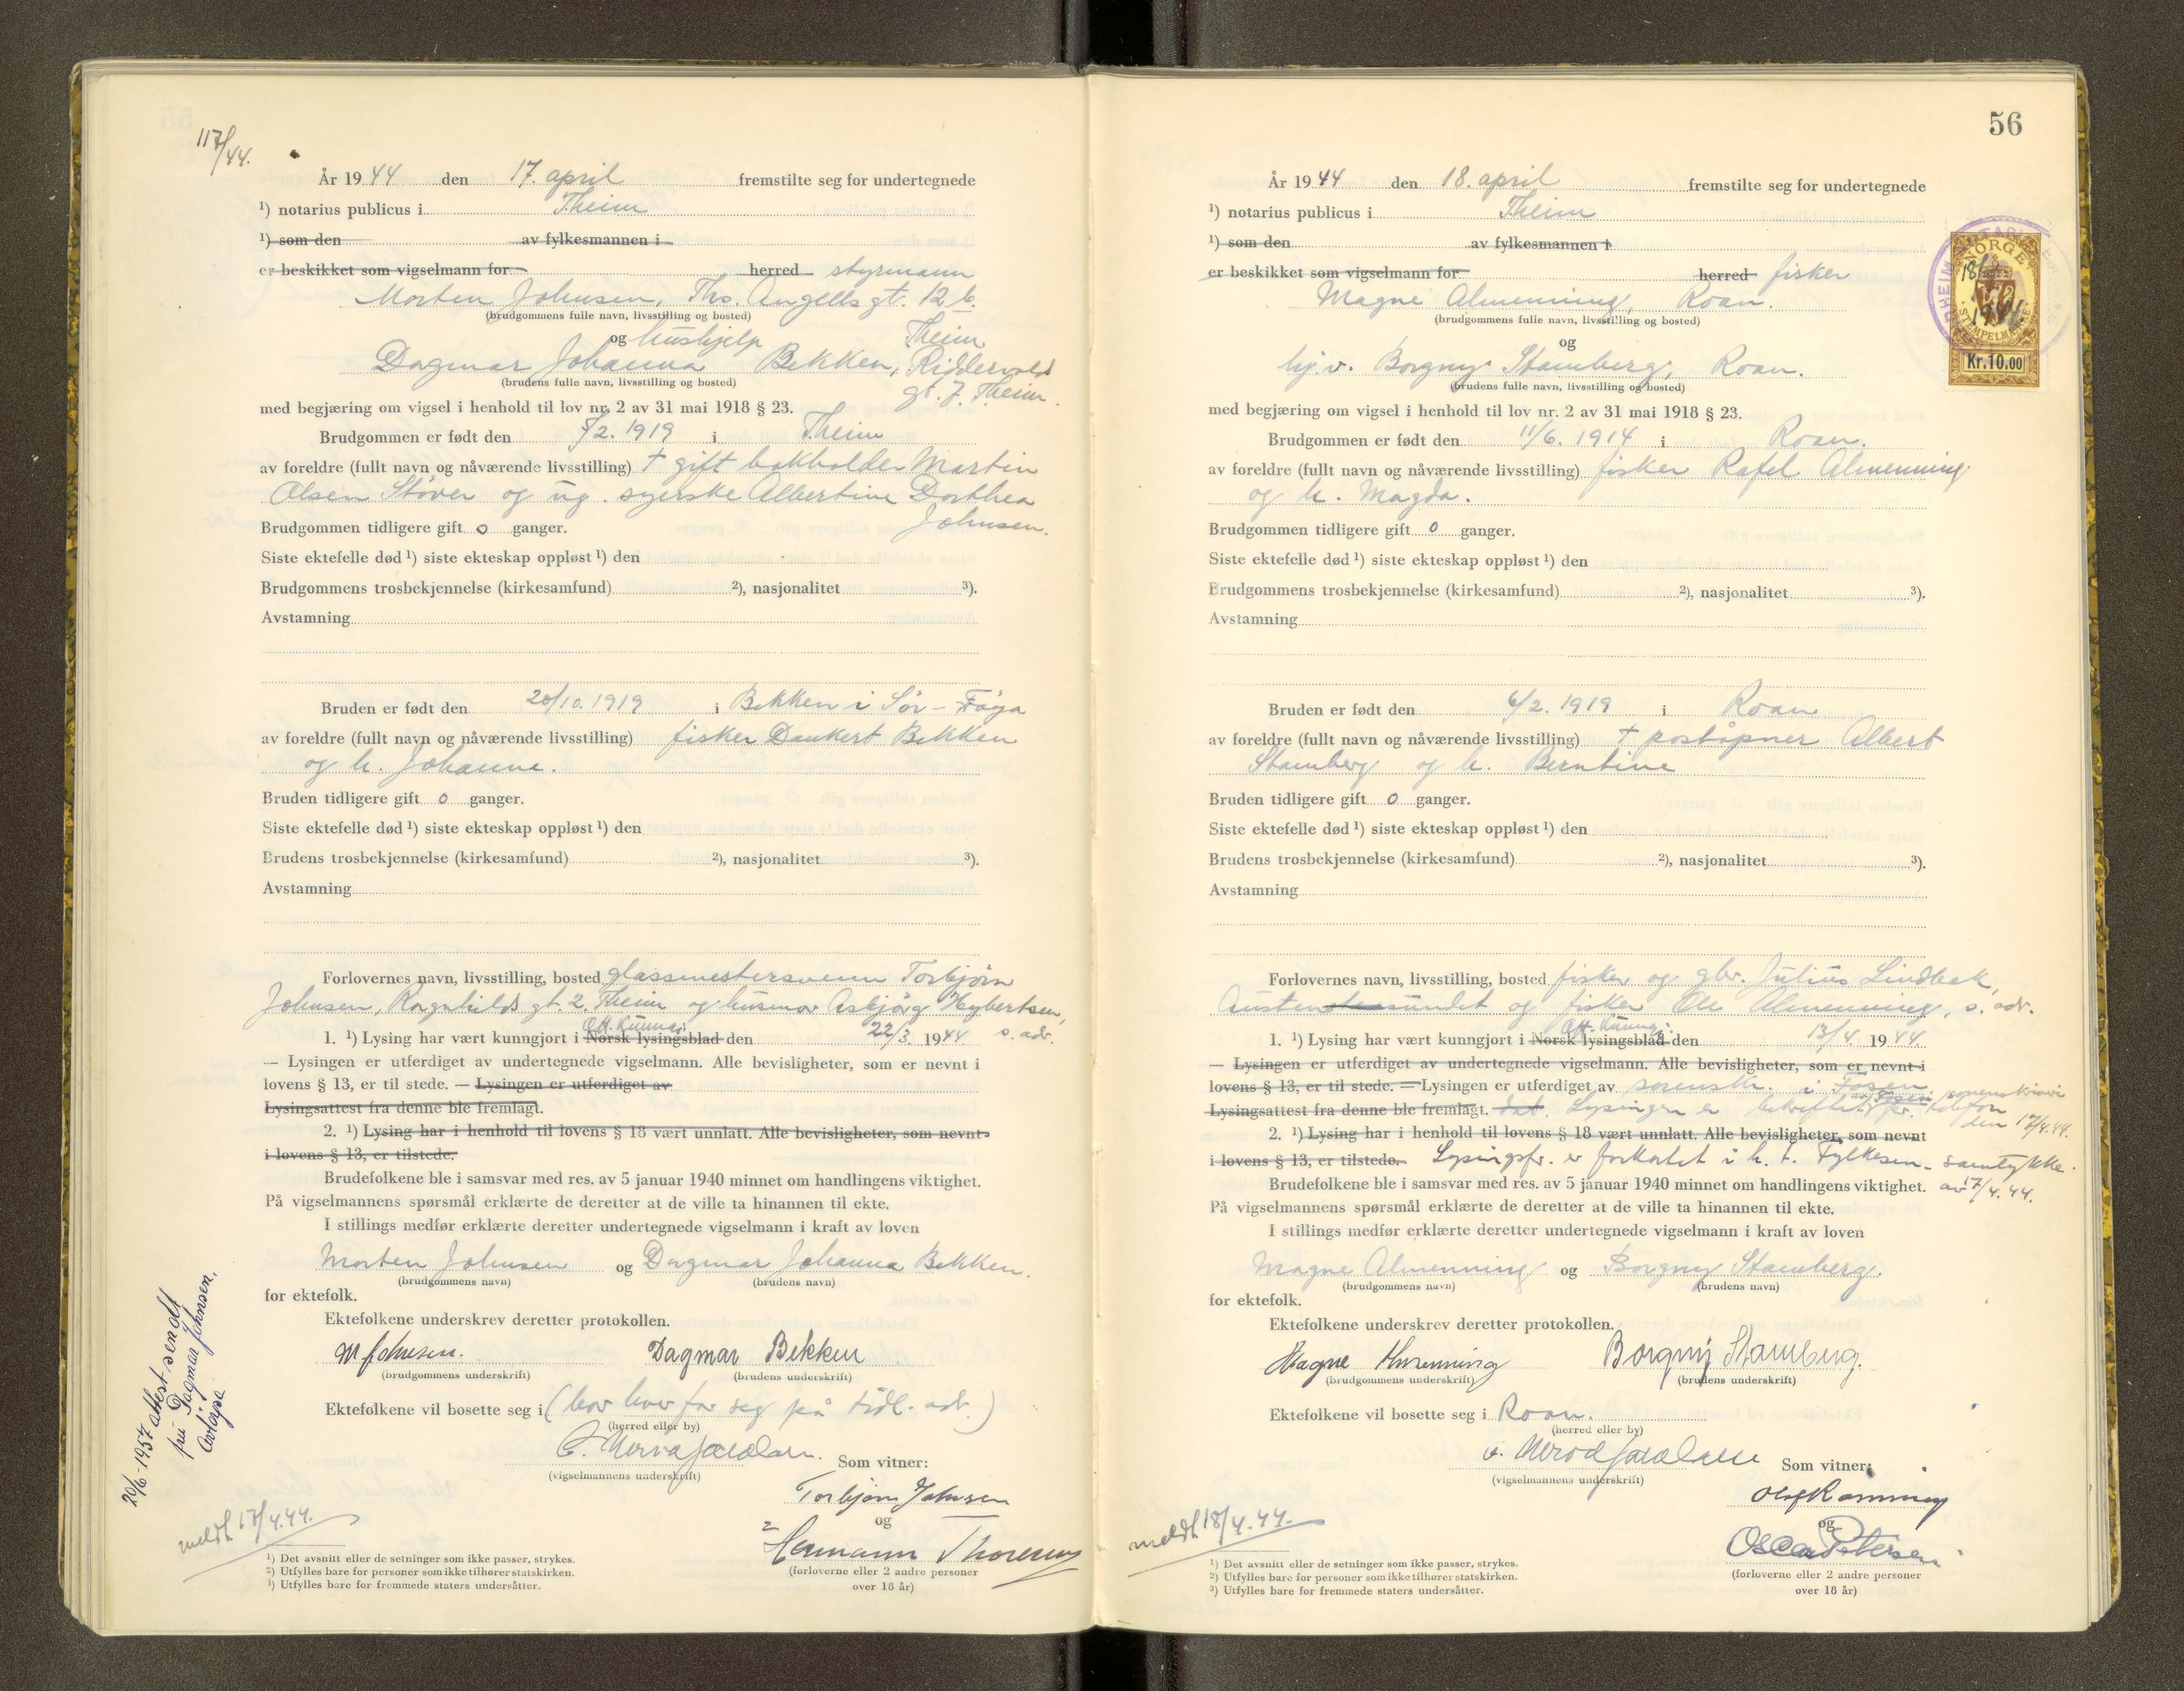 117/44.
År 1944 den 17. april fremstilte seg for undertegnede
¹) notarius publicus i Theim
¹) som den av fylkesmannen i
er beskikket som vigselmann for herred styrmann
Morten Johnsen, Ths. Angells gt. 12 b.
(brudgommens fulle navn, livsstilling og bosted)
Theim
og hushjelp
Dagmar Johanna Bekken, Riddervolds
(brudens fulle navn, livsstilling og bosted)
gt. 7. Theim.
med begjæring om vigsel i henhold til lov nr. 2 av 31 mai 1918 § 23.
Brudgommen er født den 5/2. 1919 i Theim
av foreldre (fullt navn og nåværende livsstilling) † gift bokholder Martin
Olsen Støver og ug. syerske Albertine Dorthea
Johnsen.
Brudgommen tidligere gift 0 ganger.
Siste ektefelle død ¹) siste ekteskap oppløst ¹) den
Brudgommens trosbekjennelse (kirkesamfund) ²), nasjonalitet ³).
Avstamning
Bruden er født den 20/10. 1919 i Bekken i Sør-Frøya
av foreldre (fullt navn og nåværende livsstilling) fisker Dankert Bekken
og h. Johanne.
Bruden tidligere gift 0 ganger.
Siste ektefelle død ¹) siste ekteskap oppløst ¹) den
Brudens trosbekjennelse (kirkesamfund) ²), nasjonalitet ³).
Avstamning
Forlovernes navn, livsstilling, bosted glassmestersvenn Torbjørn
Johnsen, Ragnhilds gt. 2. Theim og husmor Asbjørg Hybertsen,
s. adr.
Off. kunngj.
1. ¹) Lysing har vært kunngjort i Norsk lysingsblad den 22/3. 1944
— Lysingen er utferdiget av undertegnede vigselmann. Alle bevisligheter, som er nevnt i
lovens § 13, er til stede. — Lysingen er utferdiget av
Lysingsattest fra denne ble fremlagt.
2. ¹) Lysing har i henhold til lovens § 18 vært unnlatt. Alle bevisligheter, som nevnt
i lovens § 13, er tilstede.
Brudefolkene ble i samsvar med res. av 5 januar 1940 minnet om handlingens viktighet.
På vigselmannens spørsmål erklærte de deretter at de ville ta hinannen til ekte.
I stillings medfør erklærte deretter undertegnede vigselmann i kraft av loven
Morten Johnsen og Dagmar Johanna Bekken.
(brudgommens navn) (brudens navn)
for ektefolk.
Ektefolkene underskrev deretter protokollen.
M Johnsen. Dagmar Bekken
(brudgommens underskrift) (brudens underskrift)
Ektefolkene vil bosette seg i (bor hver for seg på tidl. adr.)
(herred eller by)
(vigselmannens underskrift)
Som vitner:
Torbjørn Johnsen
og
Hermann
(forloverne eller 2 andre personer
over 18 år)
20/6-1957 attest sendt
fru Dagmar Johnsen,
meldt 17/4.44.
¹) Det avsnitt eller de setninger som ikke passer, strykes.
²) Utfylles bare for personer som ikke tilhører statskirken.
³) Utfylles bare for fremmede staters undersåtter.
56
År 1944 den 18. april fremstilte seg for undertegnede
¹) notarius publicus i Theim
¹) som den av fylkesmannen i
er beskikket som vigselmann for herred fisker
Magne Almenning, Roan.
(brudgommens fulle navn, livsstilling og bosted)
og
hj.v. Borgny Stamberg, Roan.
(brudens fulle navn, livsstilling og bosted)
NORGE
STEMPELMERKE
Kr.10.00
med begjæring om vigsel i henhold til lov nr. 2 av 31 mai 1918 § 23.
Brudgommen er født den 11/6. 1914 i Roan.
av foreldre (fullt navn og nåværende livsstilling) fisker Rafel Almenning
og h. Magda.
Brudgommen tidligere gift 0 ganger.
Siste ektefelle død ¹) siste ekteskap oppløst ¹) den
Brudgommens trosbekjennelse (kirkesamfund) ²), nasjonalitet ³).
Avstamning
Bruden er født den 6/2. 1919 i Roan
av foreldre (fullt navn og nåværende livsstilling) † poståpner Albert
Stamberg og h. Berntine
Bruden tidligere gift 0 ganger.
Siste ektefelle død ¹) siste ekteskap oppløst ¹) den
Brudens trosbekjennelse (kirkesamfund) ²), nasjonalitet ³).
Avstamning
Forlovernes navn, livsstilling, bosted fisker og gbr. Julius Lindbek,
og fisker Ole Almenning, s. adr.
Off. kunngj.
1. ¹) Lysing har vært kunngjort i Norsk lysingsblad den 13/4. 1944.
— Lysingen er utferdiget av undertegnede vigselmann. Alle bevisligheter, som er nevnt i
lovens § 13, er til stede. — Lysingen er utferdiget av sorenskr. i Fosen.
av Fosen sorenskriveri
Lysingsattest fra denne ble fremlagt. Lysingen er bekreftet pr. telefon
den 17/4.44.
2. ¹) Lysing har i henhold til lovens § 18 vært unnlatt. Alle bevisligheter, som nevnt
i lovens § 13, er tilstede. Lysingsfr. er forkortet i h. t. Fylkesm. samtykke
av 17/4.44.
Brudefolkene ble i samsvar med res. av 5 januar 1940 minnet om handlingens viktighet.
På vigselmannens spørsmål erklærte de deretter at de ville ta hinannen til ekte.
I stillings medfør erklærte deretter undertegnede vigselmann i kraft av loven
Magne Almenning og Borgny Stamberg.
(brudgommens navn) (brudens navn)
for ektefolk.
Ektefolkene underskrev deretter protokollen.
Magne Almenning Borgny Stamberg.
(brudgommens underskrift) (brudens underskrift)
Ektefolkene vil bosette seg i Roan.
(herred eller by)
(vigselmannens underskrift)
Som vitner:
og
Oscar Petersen
(forloverne eller 2 andre personer
over 18 år)
meldt 18/4.44.
¹) Det avsnitt eller de setninger som ikke passer, strykes.
²) Utfylles bare for personer som ikke tilhører statskirken.
³) Utfylles bare for fremmede staters undersåtter.